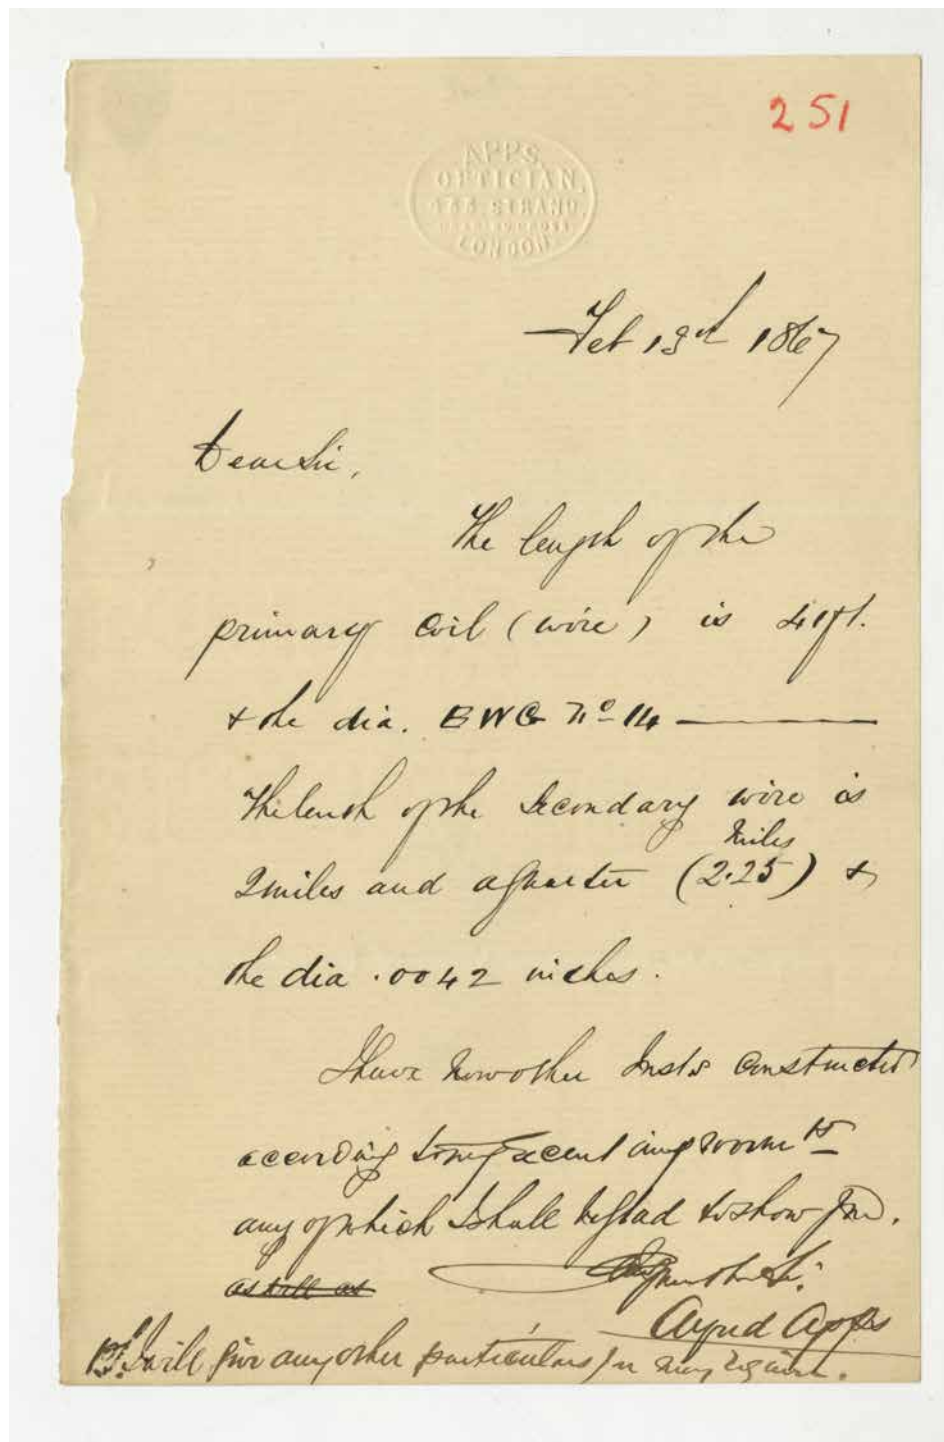 251
APPS,
OPTICIAN,
STRAND,
LONDON
Feb 13th 1867
Dear Sir,
The length of the
primary coil (wire) is 41 ft.
& the dia. BWG No 14
The lenth of the Secondary wire is
miles
2 miles and a quarter (2.25) &
the dia .0042 inches.
I have now other Insts constructed
according to my recent improvmts
any of which I shall be glad to show you.
as well as
Alfred Apps
I will give any other particulars you may require.